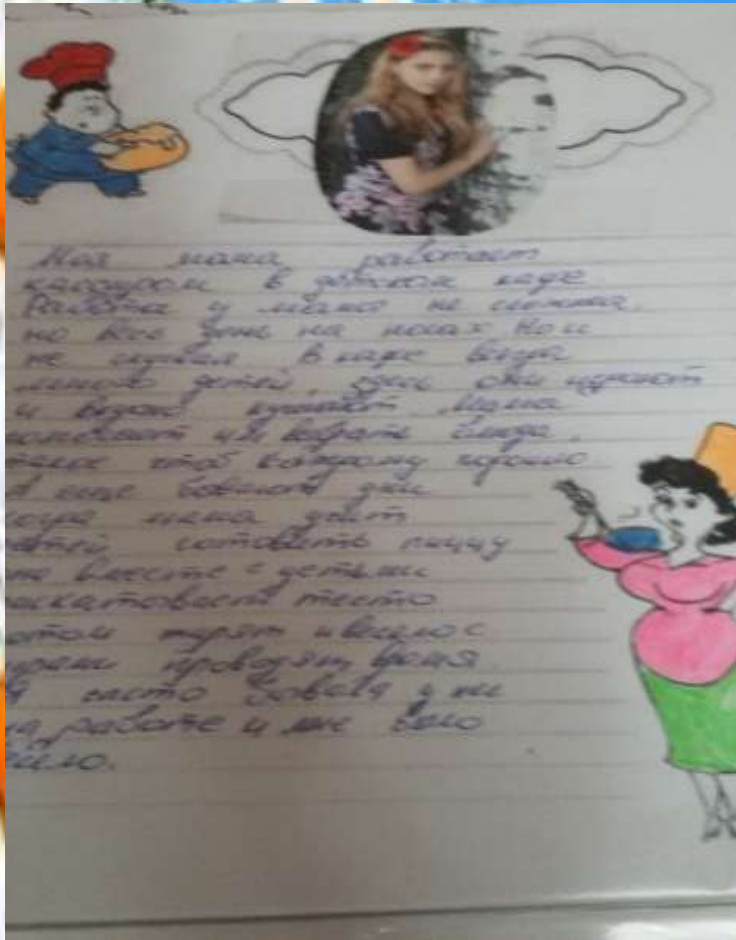 Моя мама работает
кассиром в детском кафе.
Работа у мамы не сложная,
но весь день на ногах Но и
не скучная В кафе всегда
много детей, здесь они играют
и вкусно кушают. Мама
помогает им выбрать блюда,
чтоб каждому хорошо
А еще бывают дни
когда мама учит
детей готовить пиццу
вместе с детьми
раскатывает тесто
потом жарят и весело с
проводят время.
Я часто бывала у неё
на работе и мне было
весело.